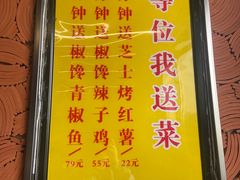 等位我送菜
钟送芝士烤红薯/22元
钟送椒馋辣子鸡/55元
钟送椒馋青椒鱼/79元